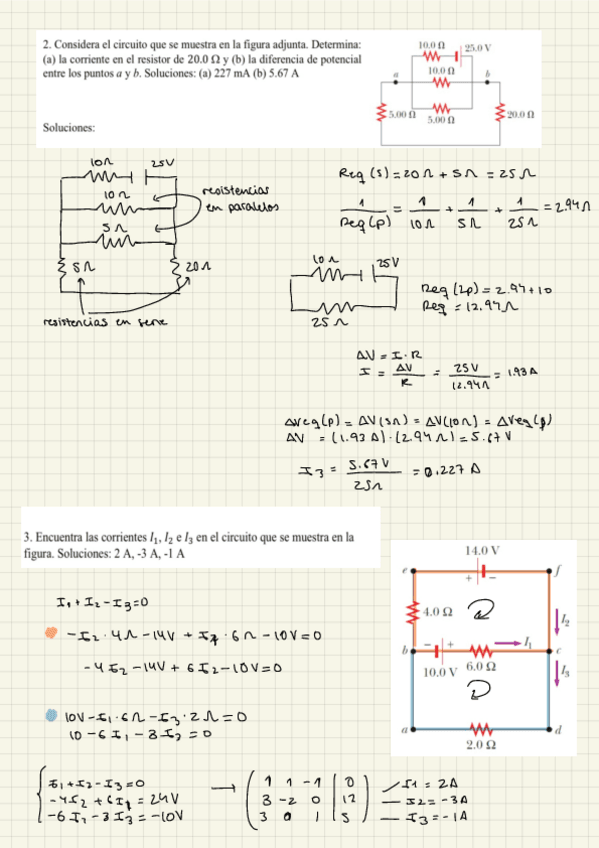 2. Considera el circuito que se muestra en la figura adjunta. Determina:
(a) la corriente en el resistor de 20.0 Ω y (b) la diferencia de potencial
entre los puntos a y b. Soluciones: (a) 227 mA (b) 5.67 A
Soluciones:
10.0 Ω
25.0 V
10.0 Ω
a
b
5.00 Ω
5.00 Ω
20.0 Ω
10Ω 25V
10Ω
5Ω
5Ω
20Ω
resistencias
en paralelos
resistencias en serie
Req (s) = 20Ω + 5Ω = 25Ω
1/Req(p) = 1/10Ω + 1/5Ω + 1/25Ω = 2.94Ω
10Ω 25V
25Ω
Req (2p) = 2.94+10
Req = 12.94Ω
ΔV = I · R
I = ΔV/R = 25V/12.94Ω = 1.93A
ΔVeq(p) = ΔV(5Ω) = ΔV(10Ω) = ΔVeq(p)
ΔV = (1.93A)·(2.94Ω) = 5.67V
I3 = 5.67V/25Ω = 0.227A
3. Encuentra las corrientes I1, I2 e I3 en el circuito que se muestra en la
figura. Soluciones: 2 A, -3 A, -1 A
14.0 V
e
f
+ −
4.0 Ω
I2
− +
I1
b
c
10.0 V
6.0 Ω
I3
a
d
2.0 Ω
I1+I2-I3=0
-I2·4Ω-14V+I1·6Ω-10V=0
-4I2-14V+6I2-10V=0
10V-I1·6Ω-I3·2Ω=0
10-6I1-3I2=0
I1+I2-I3=0
-4I2+6I1=24V
-6I1-3I3=-10V
→
1 1 -1 | 0
3 -2 0 | 12
3 0 1 | 5
I1=2A
I2=-3A
I3=-1A